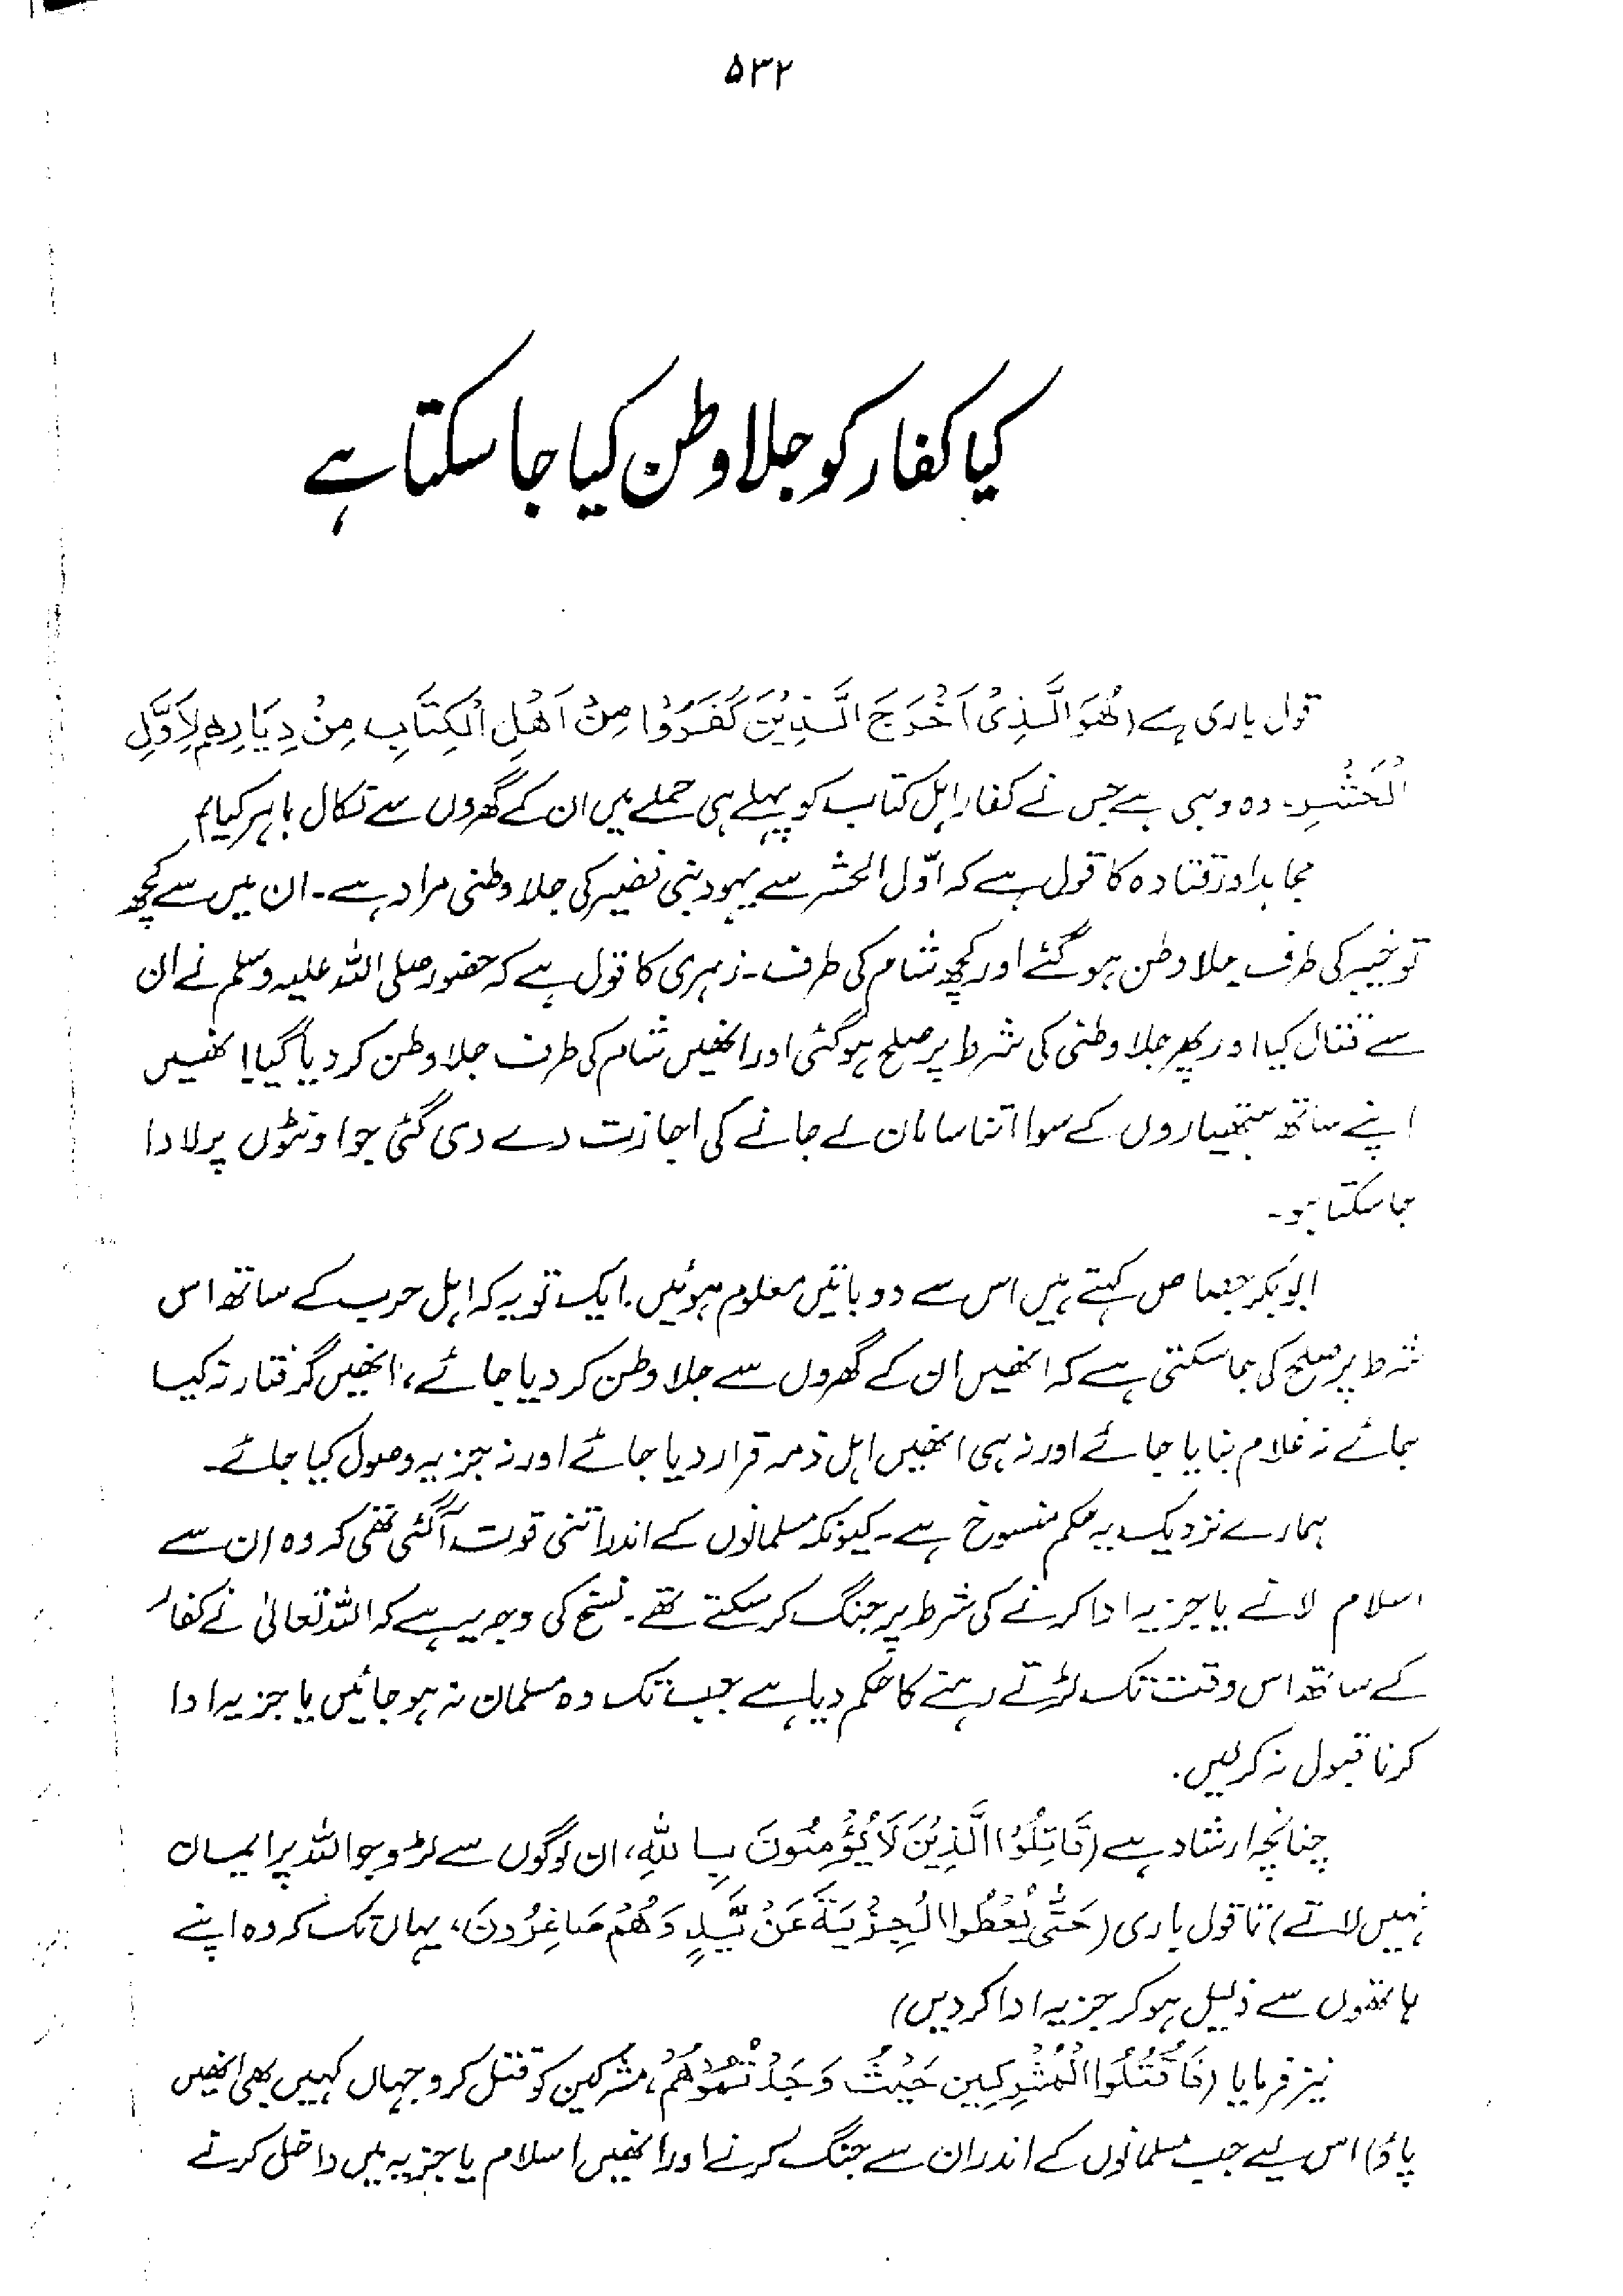 ۵۳۲
کیا کفار کو جلاوطن کیا جا سکتا ہے
قول باری ہے (هُوَ الَّذِىْ اَخْرَجَ الَّذِيْنَ كَفَرُوْا مِنْ اَهْلِ الْكِتَابِ مِنْ دِيَارِهِمْ لِاَوَّلِ
الْحَشْرِ۔ وہ وہی ہے جس نے کفار اہل کتاب کو پہلے ہی حملے میں ان کے گھروں سے نکال باہر کیا)
مجاہد اور قتادہ کا قول ہے کہ اوّل الحشر سے یہود بنی نضیر کی جلاوطنی مراد ہے۔ ان میں سے کچھ
تو خیبر کی طرف جلاوطن ہو گئے اور کچھ شام کی طرف۔ زہری کا قول ہے کہ حضور صلی اللہ علیہ وسلم نے ان
سے قتال کیا اور پھر جلاوطنی کی شرط پر صلح ہو گئی اور انھیں شام کی طرف جلاوطن کر دیا گیا انھیں
اپنے ساتھ ہتھیاروں کے سوا اتنا سامان لے جانے کی اجازت دے دی گئی جو اونٹوں پر لادا
جا سکتا ہو۔
ابوبکر جصاص کہتے ہیں اس سے دو باتیں معلوم ہوئیں۔ ایک تو یہ کہ اہل حرب کے ساتھ اس
شرط پر صلح کی جا سکتی ہے کہ انھیں ان کے گھروں سے جلاوطن کر دیا جائے، انھیں گرفتار نہ کیا
جائے نہ غلام بنایا جائے اور نہ ہی انھیں اہل ذمہ قرار دیا جائے اور نہ جزیہ وصول کیا جائے۔
ہمارے نزدیک یہ حکم منسوخ ہے۔ کیونکہ مسلمانوں کے اندر اتنی قوت آگئی تھی کہ وہ ان سے
اسلام لانے یا جزیہ ادا کرنے کی شرط پر جنگ کر سکتے تھے۔ نسخ کی وجہ یہ ہے کہ اللہ تعالیٰ نے کفار
کے ساتھ اس وقت تک لڑتے رہنے کا حکم دیا ہے جب تک وہ مسلمان نہ ہو جائیں یا جزیہ ادا
کرنا قبول نہ کر لیں۔
چنانچہ ارشاد ہے (قَاتِلُوا الَّذِيْنَ لَا يُؤْمِنُوْنَ بِاللّٰهِ، ان لوگوں سے لڑو جو اللہ پر ایمان
نہیں لاتے) تا قول باری (حَتّٰى يُعْطُوا الْجِزْيَةَ عَنْ يَّدٍ وَهُمْ صَاغِرُوْنَ، یہاں تک کہ وہ اپنے
ہاتھوں سے ذلیل ہو کر جزیہ ادا کر دیں)
نیز فرمایا (فَاقْتُلُوا الْمُشْرِكِيْنَ حَيْثُ وَجَدْتُّمُوْهُمْ، مشرکین کو قتل کرو جہاں کہیں بھی انھیں
پاؤ) اس لیے جب مسلمانوں کے اندر ان سے جنگ کرنے اور انھیں اسلام یا جزیہ میں داخل کرنے